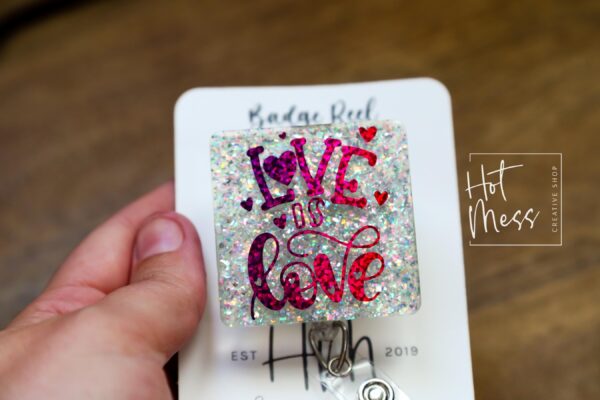 Badge Reel
LOVE
IS
love
EST 2019
Hot
Mess
CREATIVE SHOP